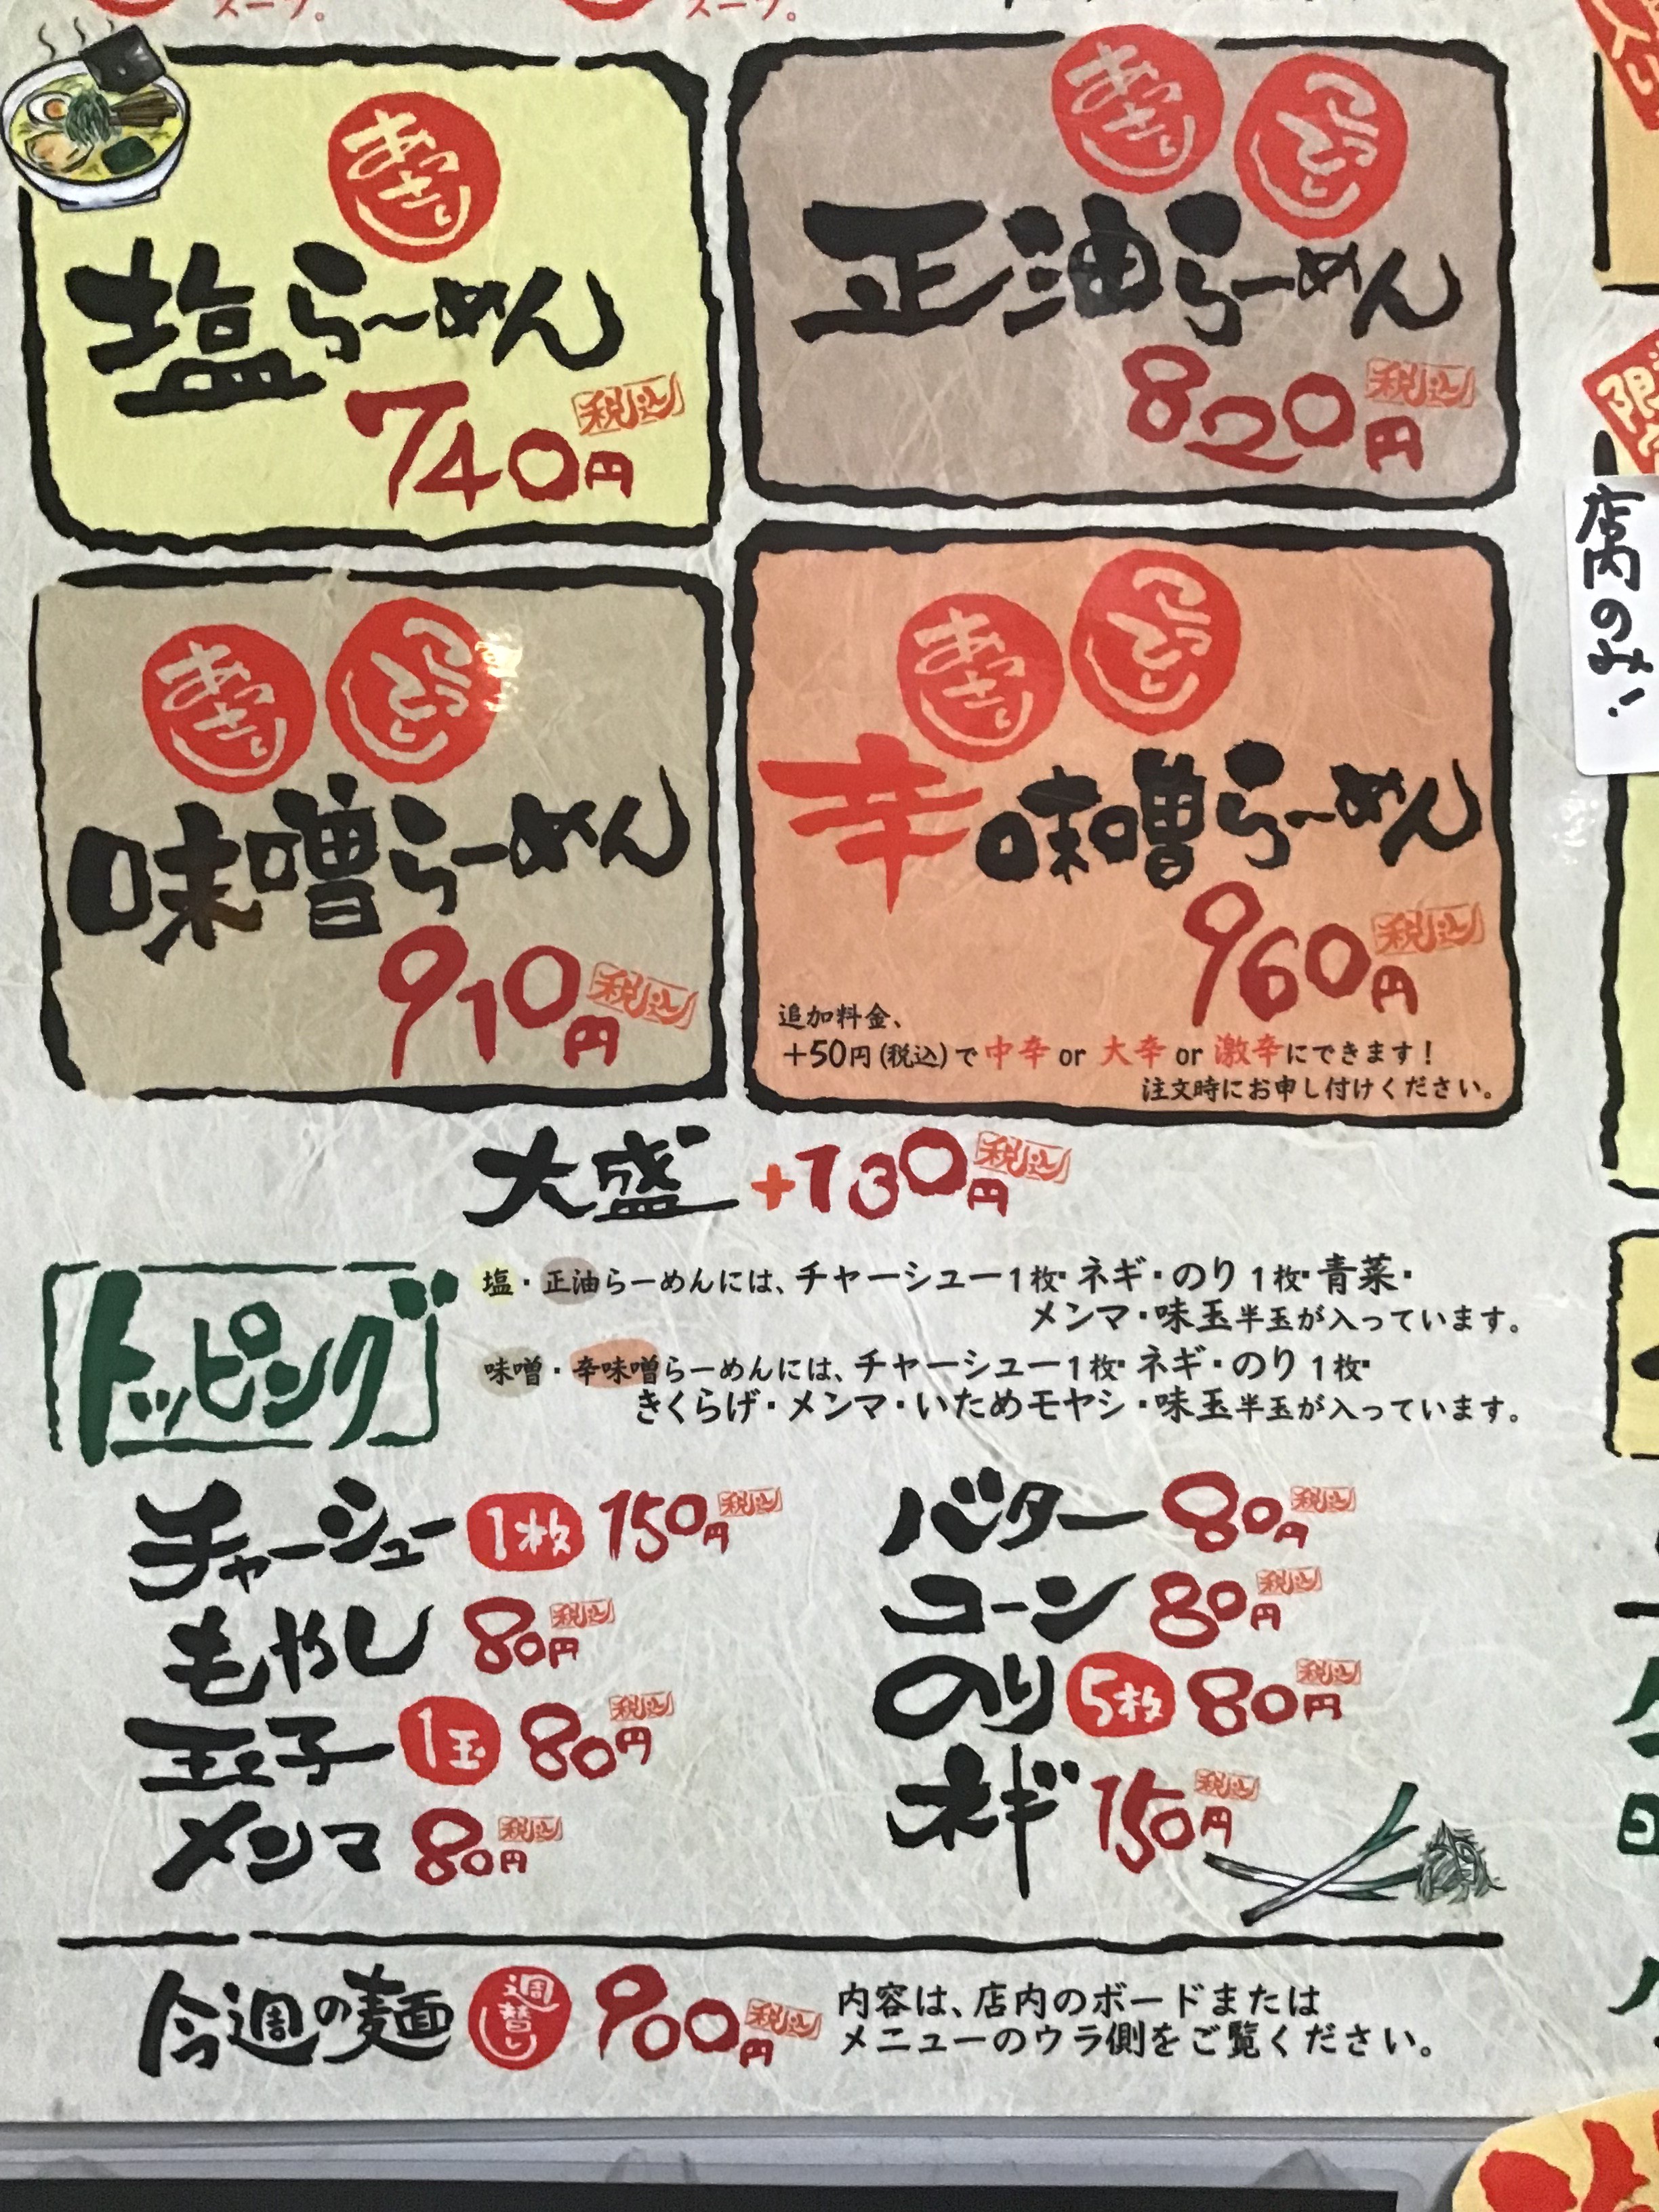 スープ。
スープ。
あっさり
塩らーめん
740円 税込
あっさり
こってり
正油らーめん
820円 税込
あっさり
こってり
味噌らーめん
910円 税込
あっさり
こってり
辛味噌らーめん
960円 税込
追加料金、
+50円(税込)で 中辛 or 大辛 or 激辛にできます!
注文時にお申し付けください。
大盛 +130円 税込
トッピング
塩・正油らーめんには、チャーシュー1枚・ネギ・のり1枚・青菜・
メンマ・味玉半玉が入っています。
味噌・辛味噌らーめんには、チャーシュー1枚・ネギ・のり1枚・
きくらげ・メンマ・いためモヤシ・味玉半玉が入っています。
チャーシュー 1枚 150円 税込
もやし 80円 税込
玉子 1玉 80円 税込
メンマ 80円 税込
バター 80円 税込
コーン 80円 税込
のり 5枚 80円 税込
ネギ 150円 税込
今週の麺 週替り 900円 税込
内容は、店内のボードまたは
メニューのウラ側をご覧ください。
店内のみ!